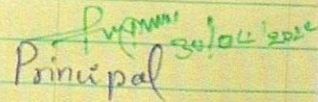 30/04/2022
Principal